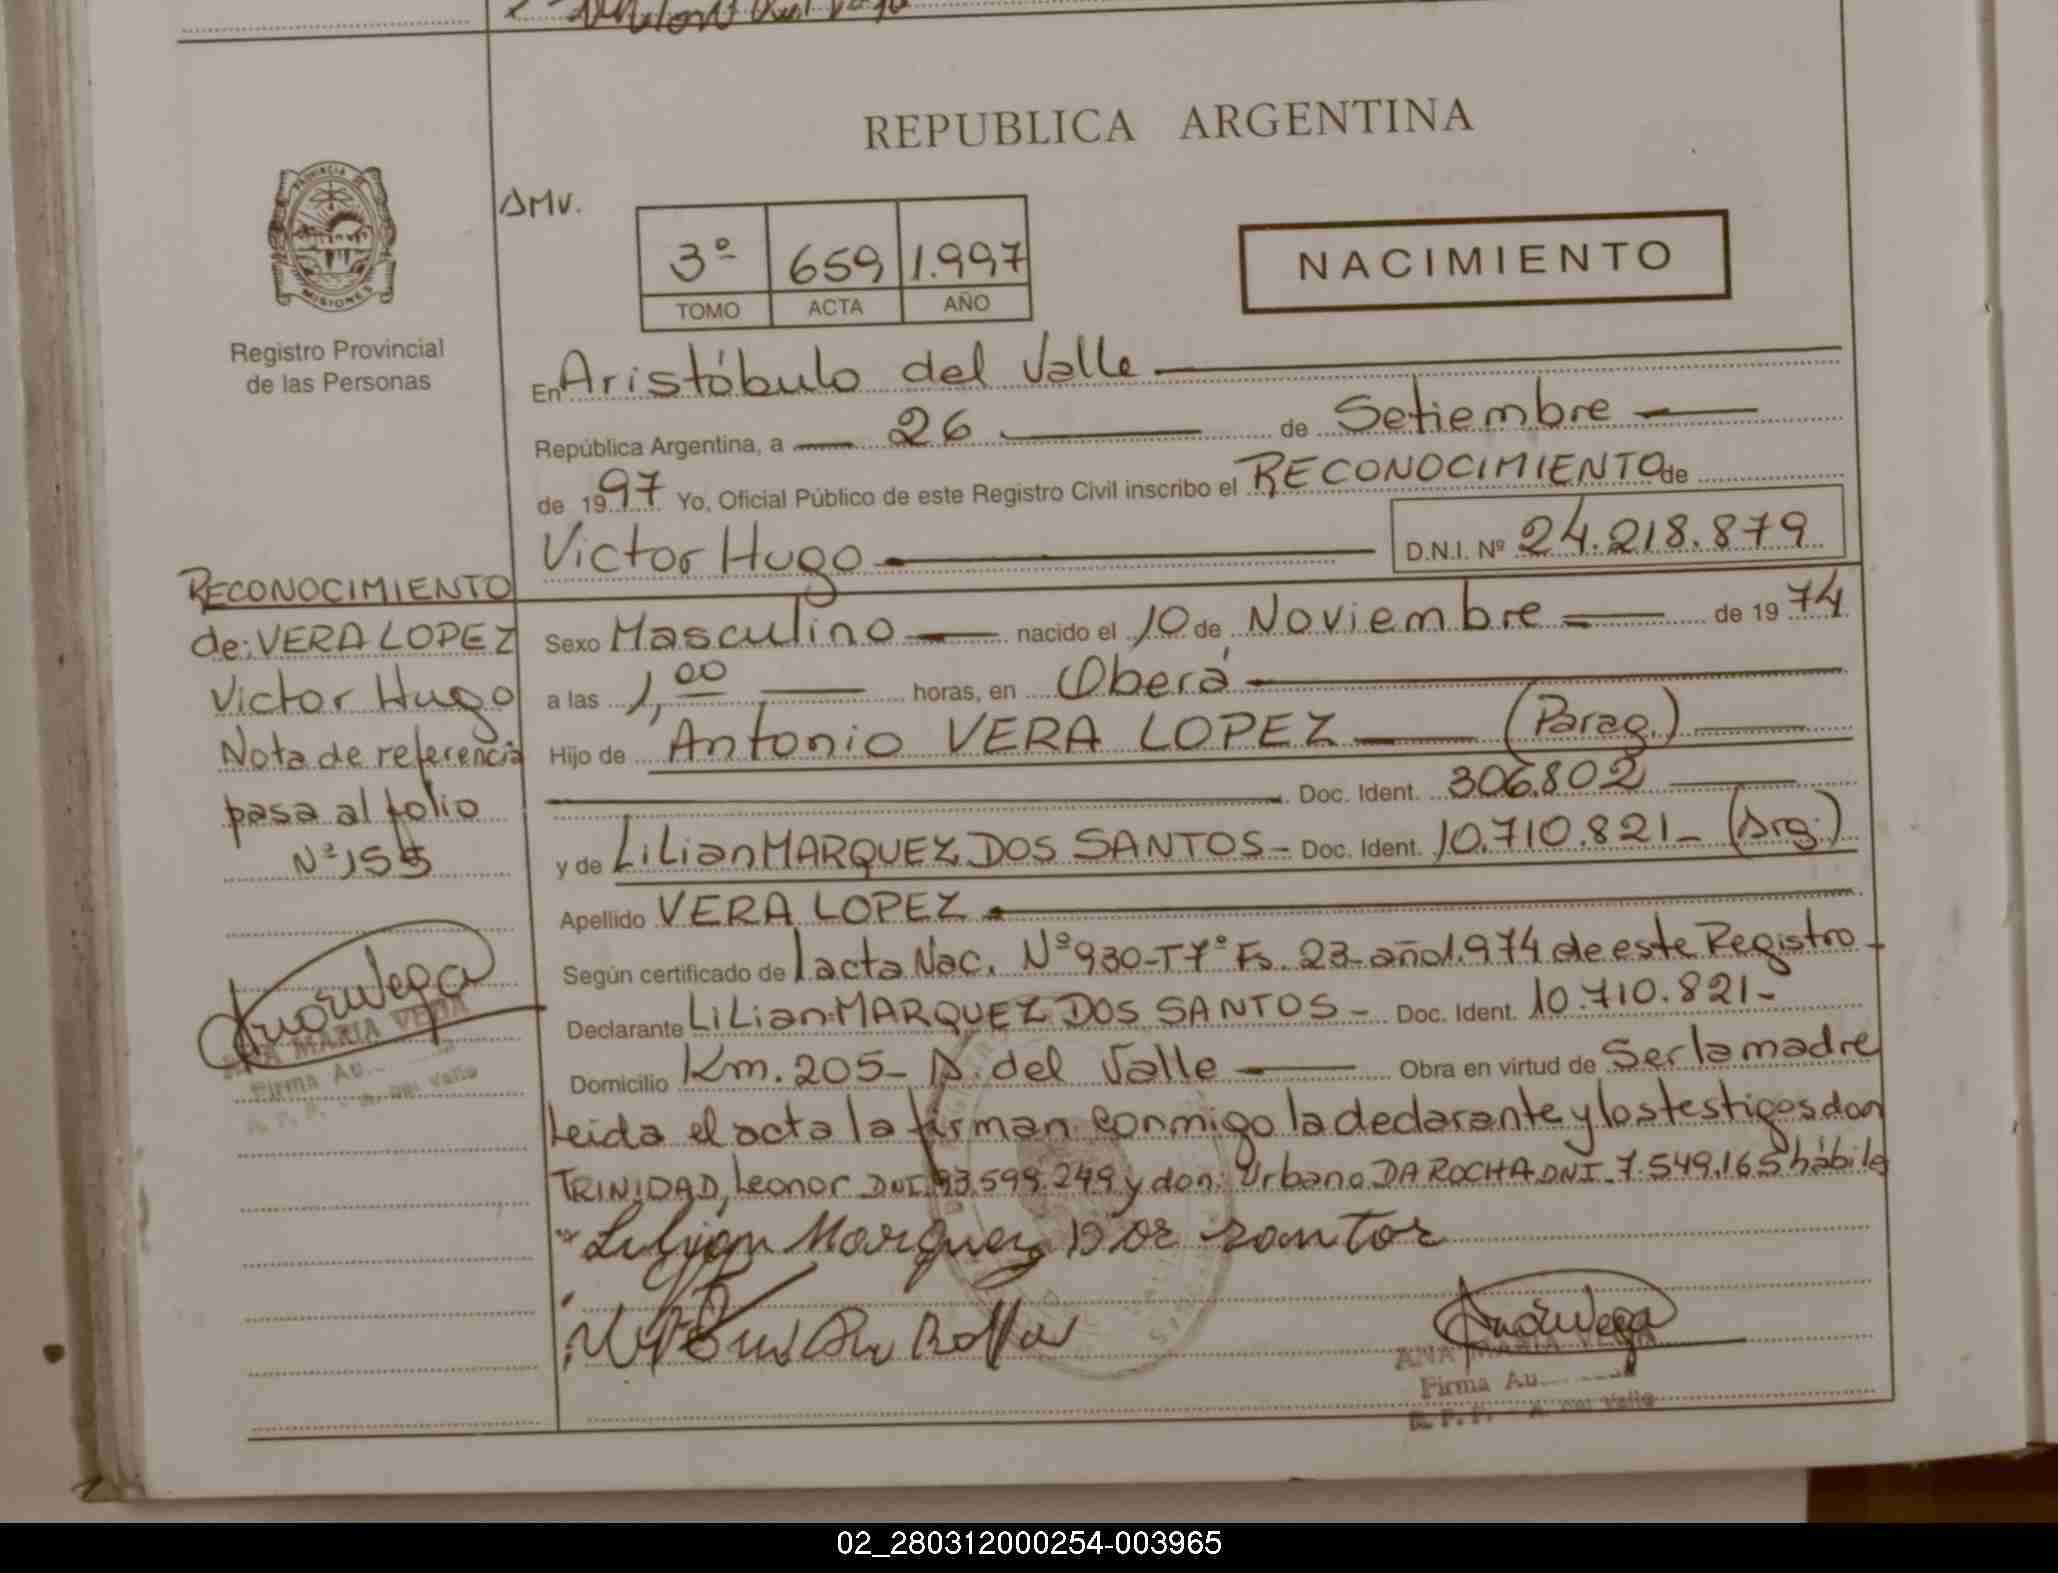 REPUBLICA ARGENTINA
PROVINCIA DE
MISIONES
Registro Provincial
de las Personas
AMV.
3º 659 1.997
TOMO ACTA AÑO
NACIMIENTO
En Aristóbulo del Valle
República Argentina, a 26 de Setiembre
de 1997 Yo, Oficial Público de este Registro Civil inscribo el RECONOCIMIENTO de
Victor Hugo D.N.I. Nº 24.218.879
RECONOCIMIENTO
de: VERA LOPEZ
Victor Hugo
Nota de referencia
pasa al folio
Nº 155
Sexo Masculino nacido el 10 de Noviembre de 1974
a las 1,00 horas, en Oberá
Hijo de Antonio VERA LOPEZ (Parag.)
Doc. Ident. 306.802
y de LiLian MARQUEZ DOS SANTOS - Doc. Ident. 10.710.821- (Arg.)
Apellido VERA LOPEZ
Según certificado de l acta Nac. Nº 930-T7º Fs. 23-año 1.974 de este Registro
Declarante LiLian MARQUEZ DOS SANTOS - Doc. Ident. 10.710.821-
Domicilio Km. 205- A. del Valle Obra en virtud de Ser la madre
Leida el acta la firman conmigo la declarante y los testigos don
TRINIDAD, Leonor DNI. 93.599.249 y don: Urbano DA ROCHA DNI. 7.549.165 hábiles
Lilian Marquez Dos santos
ANA MARIA VEGA
Firma Au
R. P. P. - A. del Valle
ANA MARIA VEGA
Firma Au
R. P. P. - A. del Valle
02_280312000254-003965